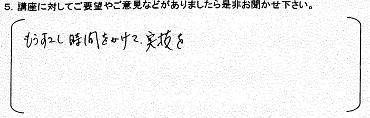 5. 講座に対してご要望やご意見などがありましたら是非お聞かせ下さい。
もう少し時間をかけて、実技を